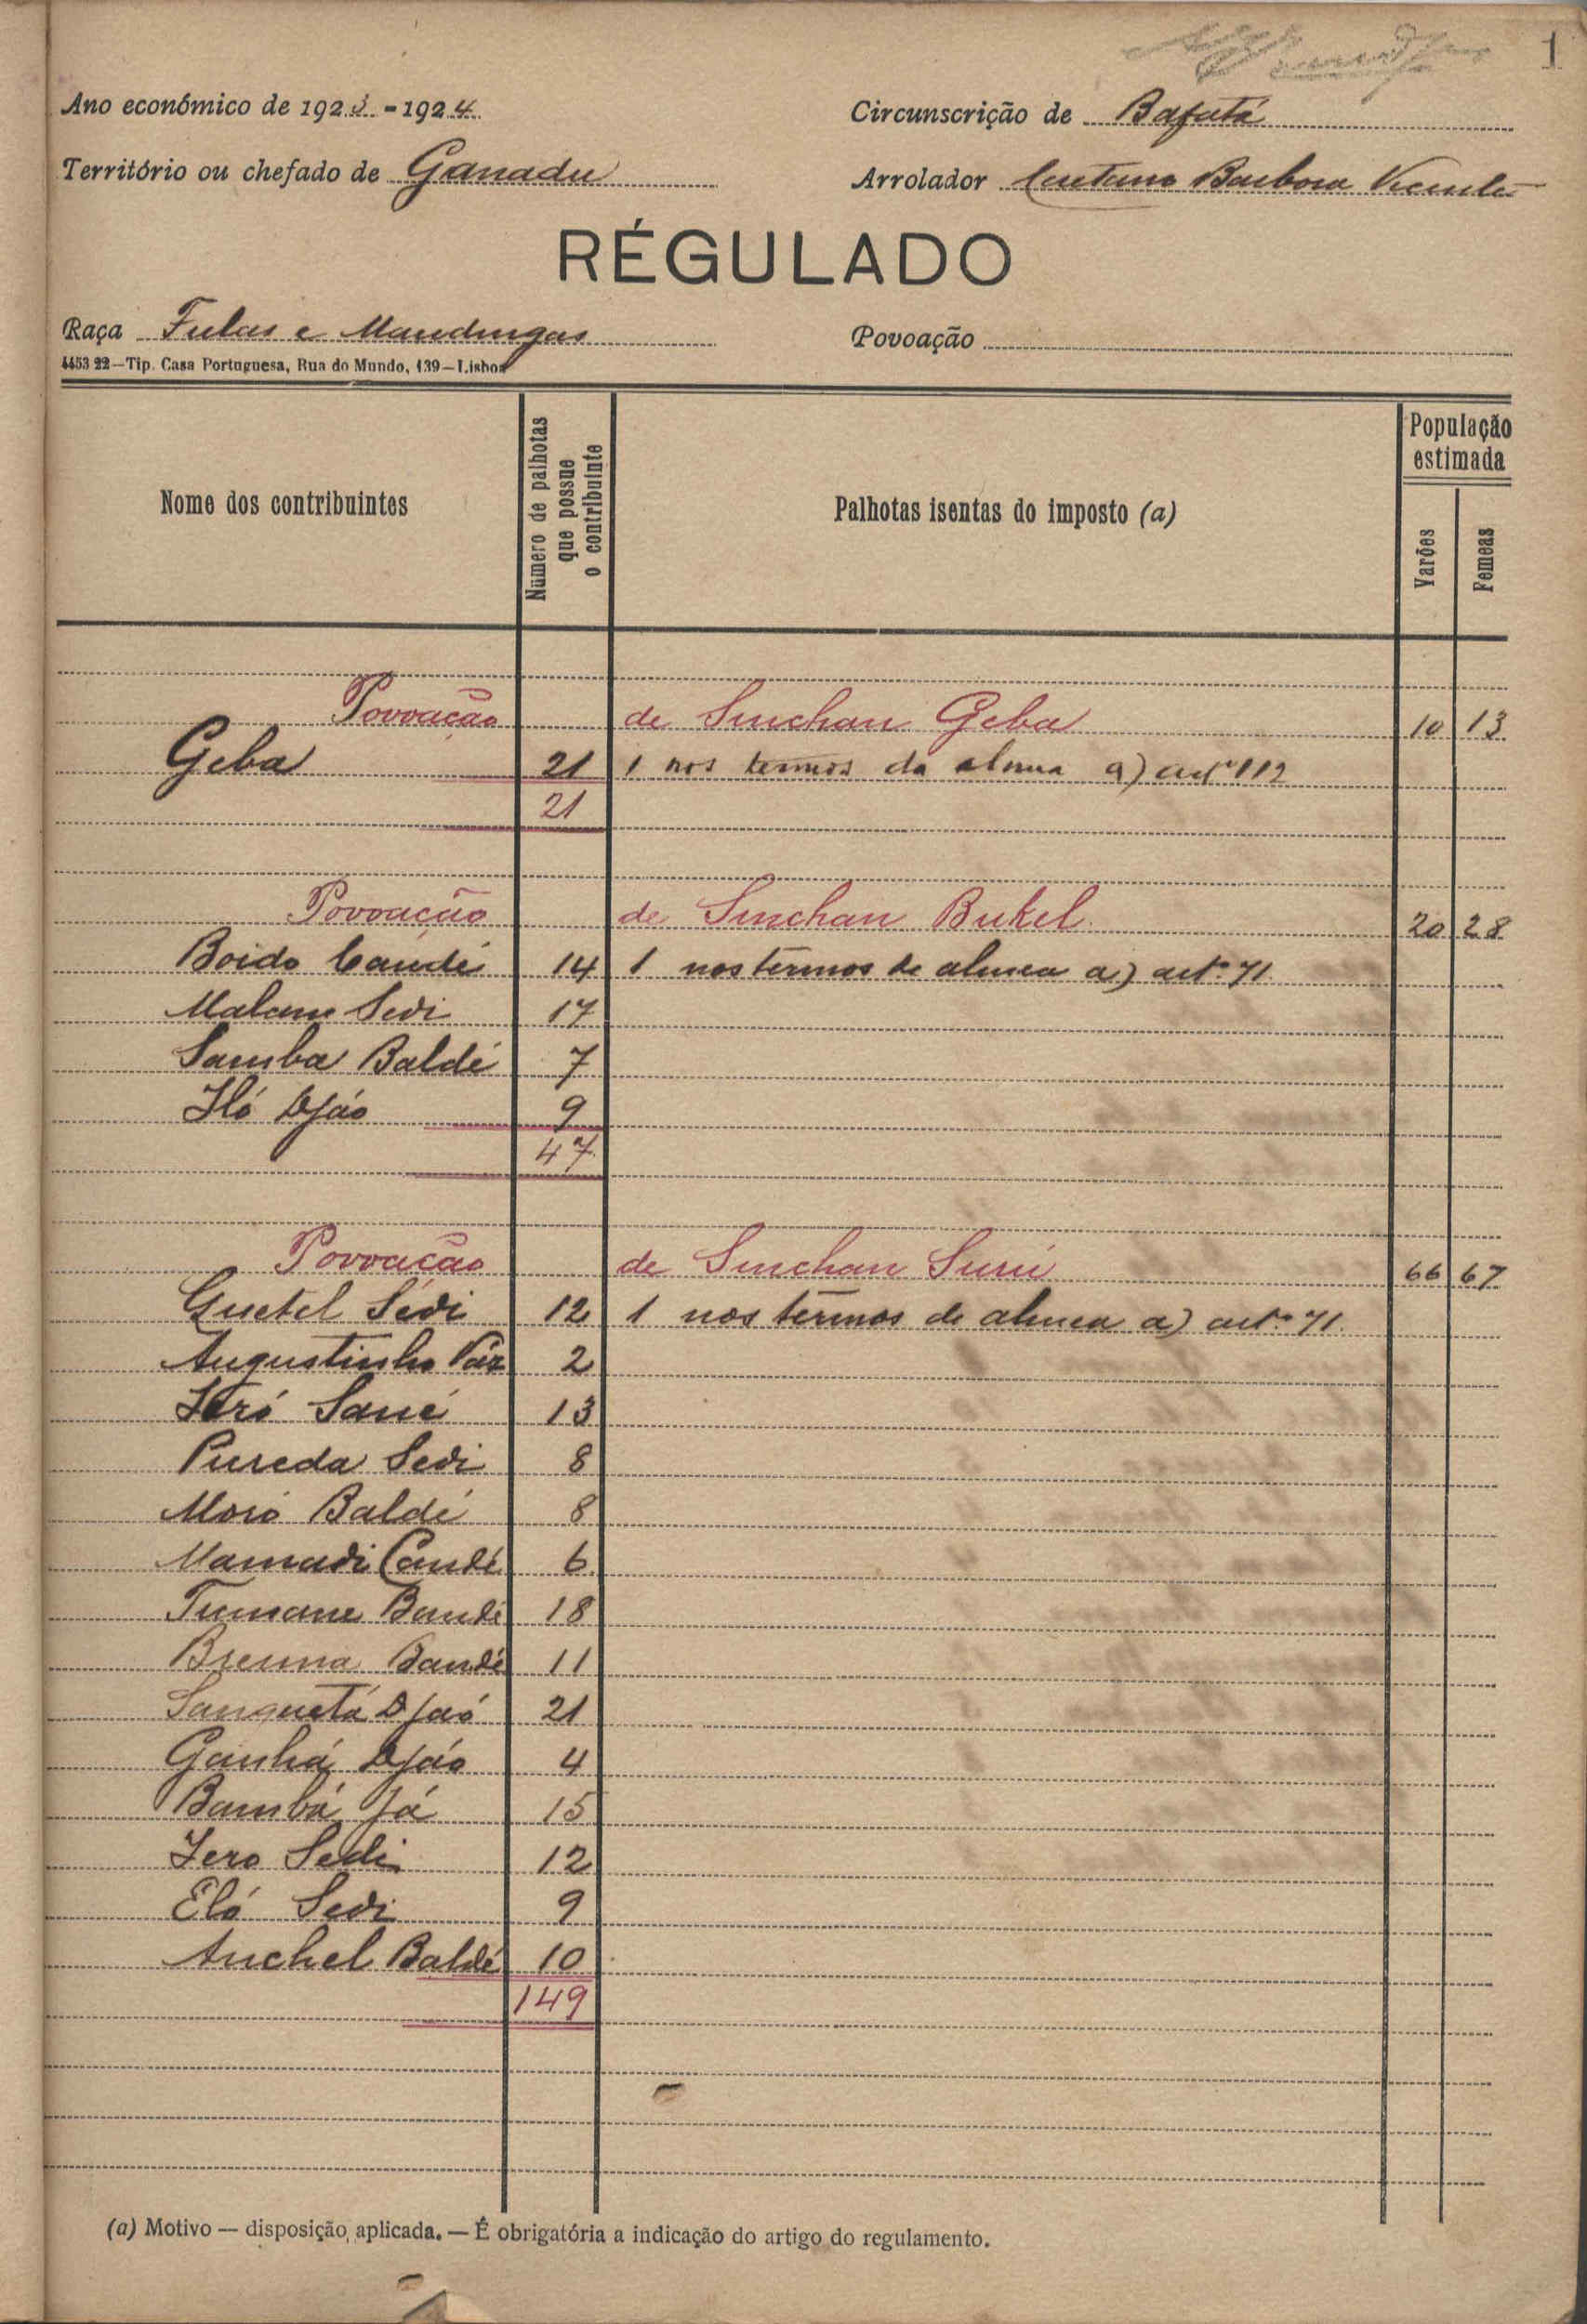 1
Ano económico de 1923-1924 Circunscrição de Bafatá
Território ou chefado de Ganadu Arrolador Caetano Barbosa Vicente
RÉGULADO
Raça Fulas e Mandingas Povoação
4453 22—Tip. Casa Portuguesa, Rua do Mundo, 139—Lisboa
Nome dos contribuintes Número de palhotas que possue o contribuinte Palhotas isentas do imposto (a) População estimada Varões Femeas
Povoação de Sinchan Geba 10 13
Geba 21 1 nos termos da alinea a) artº 112
21
Povoação de Sinchan Bukel 20 28
Boido Candé 14 1 nos termos de alinea a) artº 71
Malam Sedi 17
Samba Baldé 7
Iló Djáo 9
47
Povoação de Sinchan Surú 66 67
Guetel Sédi 12 1 nos termos de alinea a) artº 71
Augustinho Váz 2
Sané 13
Pureda Sedi 8
Moró Baldé 8
Mamadi Candé 6
Tumane Bandé 18
Breima Bandé 11
Sanquetá Djaó 21
Ganhá Djáo 4
Bambá Já 15
Jero Sedi 12
Eló Sedi 9
Anchel Baldé 10
149
(a) Motivo — disposição aplicada. — É obrigatória a indicação do artigo do regulamento.